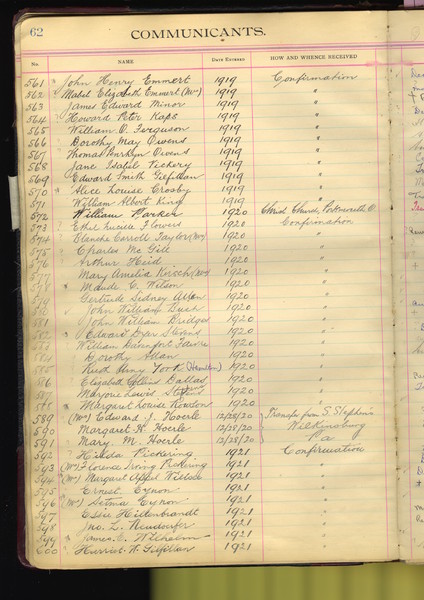 62
COMMUNICANTS.
No. NAME DATE ENTERED HOW AND WHENCE RECEIVED
561 " John Henry Emmert 1919 Confirmation
562 " Mabel Elizabeth Emmert (Mrs) 1919 "
563 " James Edward Minor 1919 "
564 " Howard Peter Kaps 1919 "
565 " William O. Ferguson 1919 "
566 " Dorothy May Owens 1919 "
567 " Thomas Owens 1919 "
568 " Jane Isabel Vickery 1919 "
569 " Edward Smith Gilfillan 1919 "
570 " Alice Louise Crosby 1919 "
571 " William Albert King 1919 "
572 William Parker 1920 Christ Church, Portsmouth O
573 " Ethel Lucille Flowers 1920 Confirmation
574 " Blanche Carroll Taylor (Mrs) 1920 "
575 " Charles Mc Gill 1920 "
576 " Arthur Heid 1920 "
577 " Mary Amelia (Mrs) 1920 "
578 " Maude C. Wilson 1920 "
579 " Gertrude Sidney Allan 1920 "
580 " John William 1920 "
581 " John William Bridges 1920 "
582 " Edward Dyer Stevens 1920 "
583 William 1920 "
584 Dorothy Allan 1920 "
585 Ruth York (Hamilton) 1920 "
586 Elizabeth Collins Dallas 1920 "
587 Marjorie Lewis Stevens 1920 "
588 " Margaret Louise Newton 1920 "
589 (Mrs) Edward J. Hoerle 12/28/20 Transfer from S. Stephen's
590 " Margaret H. Hoerle 12/28/20 Wilkinsburg
591 " Mary M. Hoerle 12/28/20 Pa
592 " Hilda Pickering 1921 Confirmation
593 (Mrs) Florence Irving Pickering 1921 "
594 (Mrs) Margaret 1921 "
595 " Ernest Eynon 1921 "
596 " (Mrs) Eynon 1921 "
597 Essie Hildenbrandt 1921 "
598 Jno. L. Neudorfer 1921 "
599 " James C. Wilhelm 1921 "
600 " Harriet W. Gilfillan 1921 "